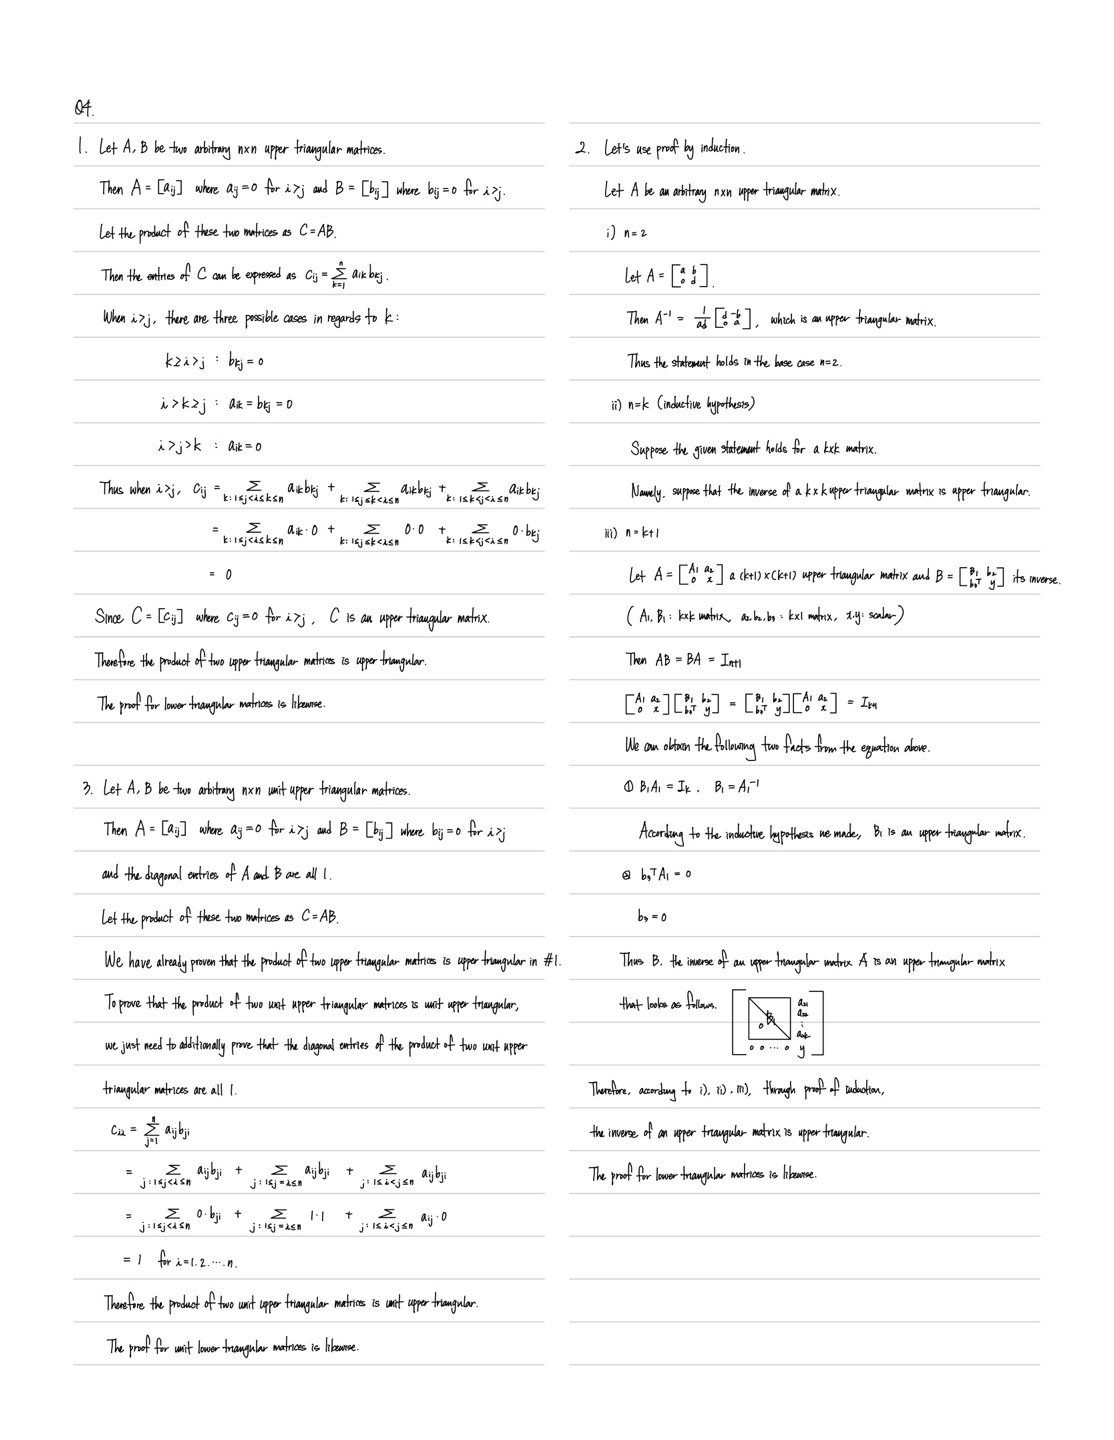 Q4.
1. Let A, B be two arbitrary n×n upper triangular matrices.
Then A = [aij] where aij = 0 for i>j and B = [bij] where bij = 0 for i>j.
Let the product of these two matrices as C = AB.
Then the entries of C can be expressed as cij = Σ_{k=1}^{n} aik bkj.
When i>j, there are three possible cases in regards to k:
k≥i>j : bkj = 0
i>k≥j : aik = bkj = 0
i>j>k : aik = 0
Thus when i>j, cij = Σ_{k: 1≤j<i≤k≤n} aik bkj + Σ_{k: 1≤j≤k<i≤n} aik bkj + Σ_{k: 1≤k<j<i≤n} aik bkj
= Σ_{k: 1≤j<i≤k≤n} aik·0 + Σ_{k: 1≤j≤k<i≤n} 0·0 + Σ_{k: 1≤k<j<i≤n} 0·bkj
= 0
Since C = [cij] where cij = 0 for i>j, C is an upper triangular matrix.
Therefore the product of two upper triangular matrices is upper triangular.
The proof for lower triangular matrices is likewise.
3. Let A, B be two arbitrary n×n unit upper triangular matrices.
Then A = [aij] where aij = 0 for i>j and B = [bij] where bij = 0 for i>j
and the diagonal entries of A and B are all 1.
Let the product of these two matrices as C = AB.
We have already proven that the product of two upper triangular matrices is upper triangular in #1.
To prove that the product of two unit upper triangular matrices is unit upper triangular,
we just need to additionally prove that the diagonal entries of the product of two unit upper
triangular matrices are all 1.
cii = Σ_{j=1}^{n} aij bji
= Σ_{j: 1≤j<i≤n} aij bji + Σ_{j: 1≤j=i≤n} aij bji + Σ_{j: 1≤i<j≤n} aij bji
= Σ_{j: 1≤j<i≤n} 0·bji + Σ_{j: 1≤j=i≤n} 1·1 + Σ_{j: 1≤i<j≤n} aij·0
= 1 for i = 1, 2, ⋯, n.
Therefore the product of two unit upper triangular matrices is unit upper triangular.
The proof for unit lower triangular matrices is likewise.
2. Let's use proof by induction.
Let A be an arbitrary n×n upper triangular matrix.
i) n=2
Let A = [a b; 0 d].
Then A⁻¹ = 1/ad [d -b; 0 a], which is an upper triangular matrix.
Thus the statement holds in the base case n=2.
ii) n=k (inductive hypothesis)
Suppose the given statement holds for a k×k matrix.
Namely, suppose that the inverse of a k×k upper triangular matrix is upper triangular.
iii) n=k+1
Let A = [A1 a2; 0 x] a (k+1)×(k+1) upper triangular matrix and B = [B1 b2; b3ᵀ y] its inverse.
(A1, B1 : k×k matrix, a2, b2, b3 : k×1 matrix, x, y : scalar)
Then AB = BA = In+1
[A1 a2; 0 x][B1 b2; b3ᵀ y] = [B1 b2; b3ᵀ y][A1 a2; 0 x] = Ik+1
We can obtain the following two facts from the equation above.
① B1A1 = Ik, B1 = A1⁻¹
According to the inductive hypothesis we made, B1 is an upper triangular matrix.
② b3ᵀA1 = 0
b3 = 0
Thus B, the inverse of an upper triangular matrix A is an upper triangular matrix
that looks as follows.
B1 a21
0 a22
⋮
a2k
0 0 ⋯ 0 y
Therefore, according to i), ii), iii), through proof of induction,
the inverse of an upper triangular matrix is upper triangular.
The proof for lower triangular matrices is likewise.